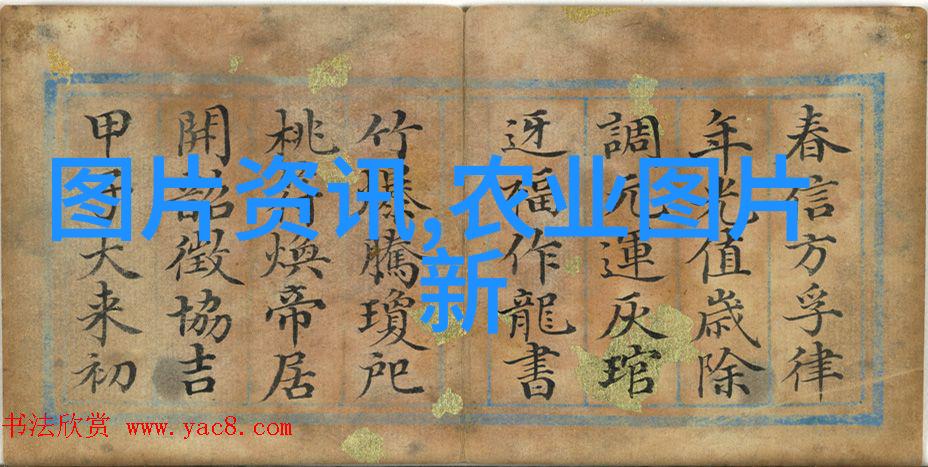 图片资讯,农业图片
新
春信方孚律
年光值歲除
調元運灰琯
迓福作龍書
竹爆騰瓊戺
桃符煥帝居
開韶徵協吉
甲子大来初
书法欣赏 www.yac8.com